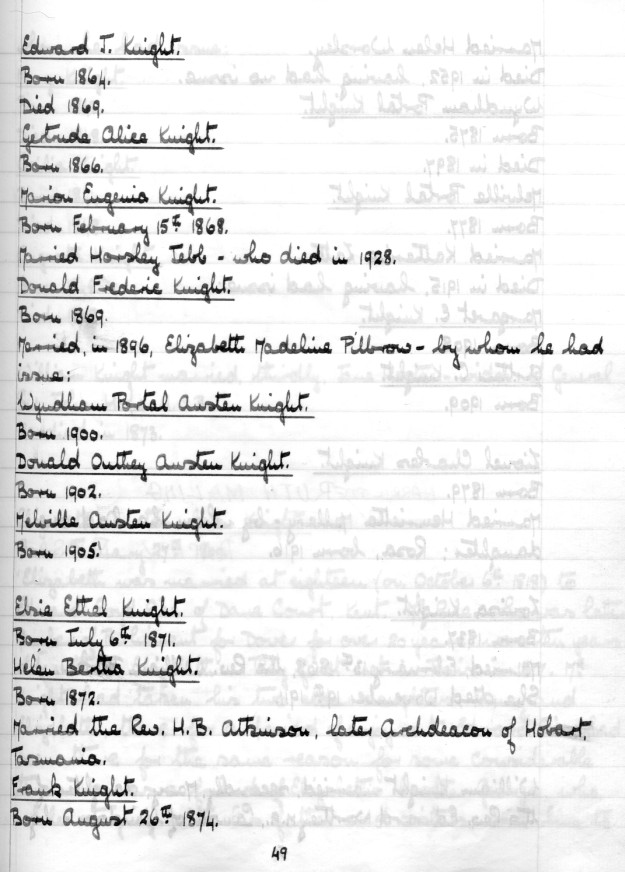 Edward T. Knight.
Born 1864.
Died 1869.
Gertrude Alice Knight.
Born 1866.
Marion Eugenia Knight.
Born February 15th 1868.
Married Horsley Tebb - who died in 1928.
Donald Frederic Knight.
Born 1869.
Married, in 1896, Elizabeth Madeline Pilbrow - by whom he had
issue:
Wyndham Portal Austen Knight.
Born 1900.
Donald Anthey Austen Knight.
Born 1902.
Melville Austen Knight.
Born 1905.
Elsie Ethel Knight.
Born July 6th 1871.
Helen Bertha Knight.
Born 1872.
Married the Rev. H.B. Atkinson, later Archdeacon of Hobart,
Tasmania.
Frank Knight.
Born August 26th 1874.
49